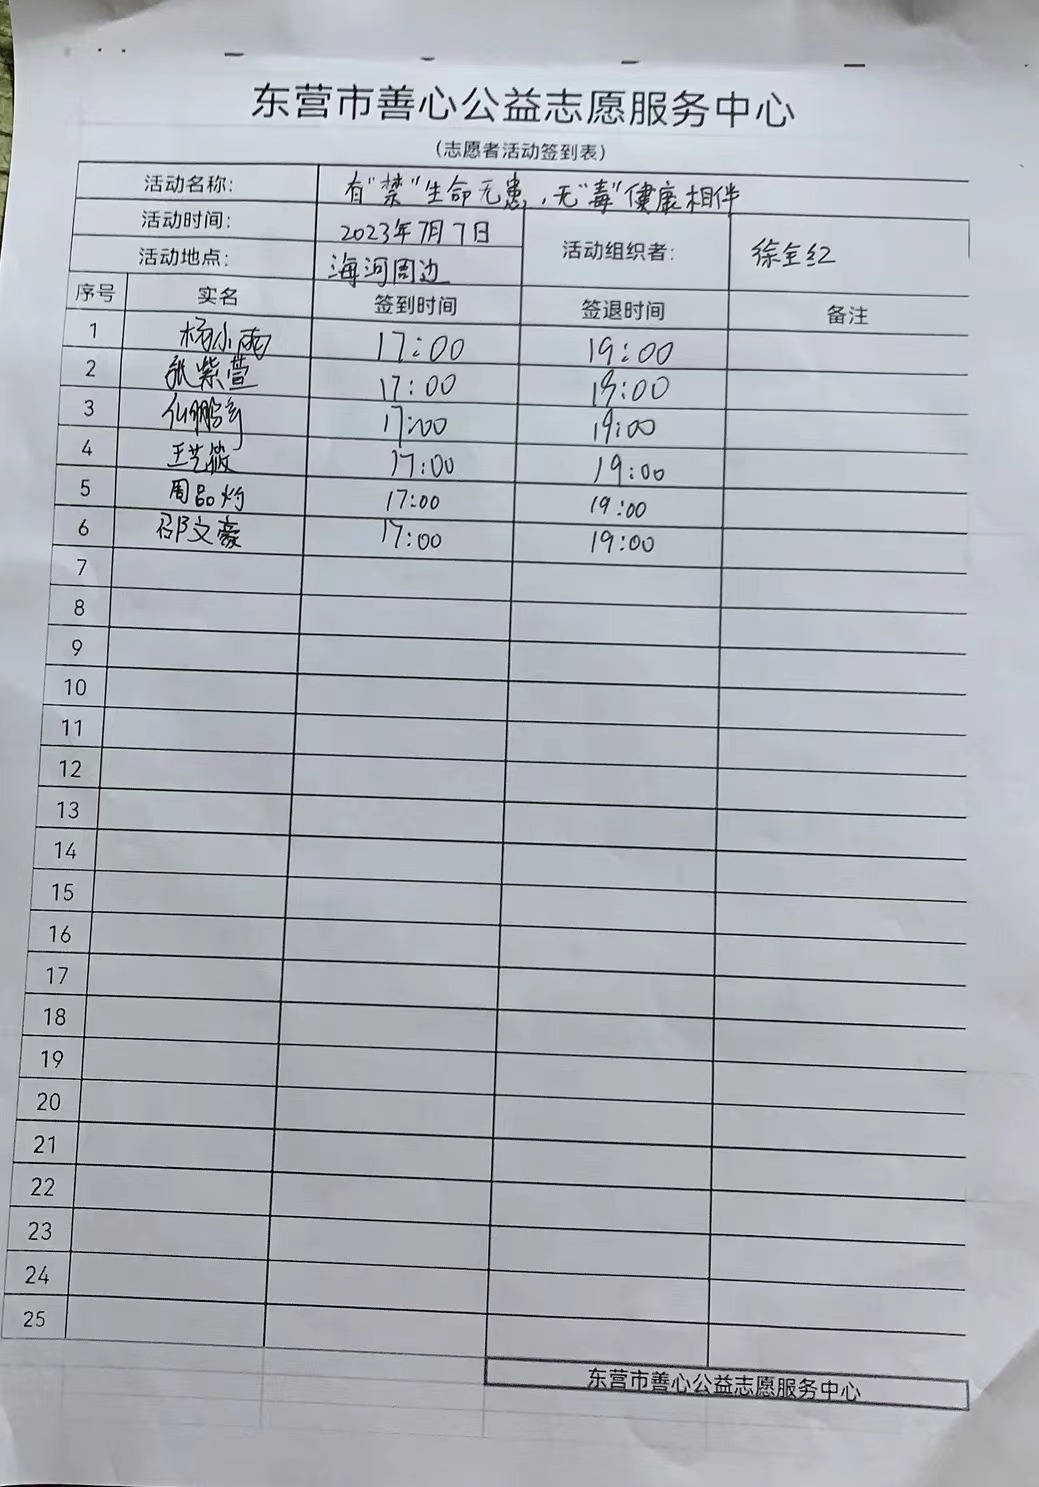 东营市善心公益志愿服务中心
(志愿者活动签到表)
活动名称: 有"禁"生命无患,无"毒"健康相伴
活动时间: 2023年7月7日 活动组织者: 徐全红
活动地点: 海河周边
序号 实名 签到时间 签退时间 备注
1 杨小雨 17:00 19:00
2 张紫萱 17:00 19:00
3 17:00 19:00
4 王艺筱 17:00 19:00
5 周品灼 17:00 19:00
6 邵文豪 17:00 19:00
7
8
9
10
11
12
13
14
15
16
17
18
19
20
21
22
23
24
25
东营市善心公益志愿服务中心